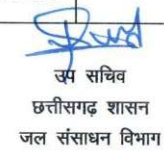 उप सचिव
छत्तीसगढ़ शासन
जल संसाधन विभाग